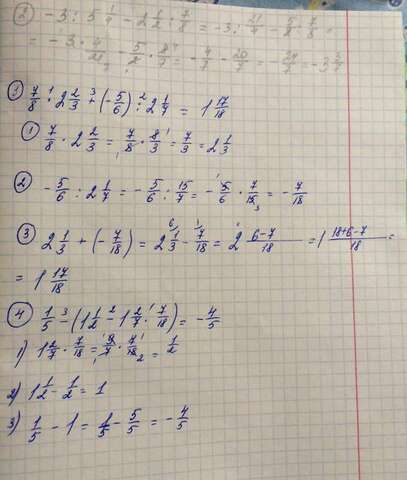 ② -3 : 5 1/4 - 2 1/2 : 7/8 = -3 : 21/4 - 5/2 : 7/8 =
= -3 · 4/21 - 5/2 · 8/7 = -4/7 - 20/7 = -24/7 = -3 3/7
③ 7/8 · 2 2/3 + (-5/6) : 2 1/7 = 1 17/18
① 7/8 · 2 2/3 = 7/8 · 8/3 = 7/3 = 2 1/3
② -5/6 : 2 1/7 = -5/6 : 15/7 = -5/6 · 7/15 = -7/18
③ 2 1/3 + (-7/18) = 2 1/3 - 7/18 = 2 6-7/18 = 1 18+6-7/18 =
= 1 17/18
④ 1/5 - (1 1/2 - 1 2/7 · 7/18) = -4/5
1) 1 2/7 · 7/18 = 9/7 · 7/18 = 1/2
2) 1 1/2 - 1/2 = 1
3) 1/5 - 1 = 1/5 - 5/5 = -4/5